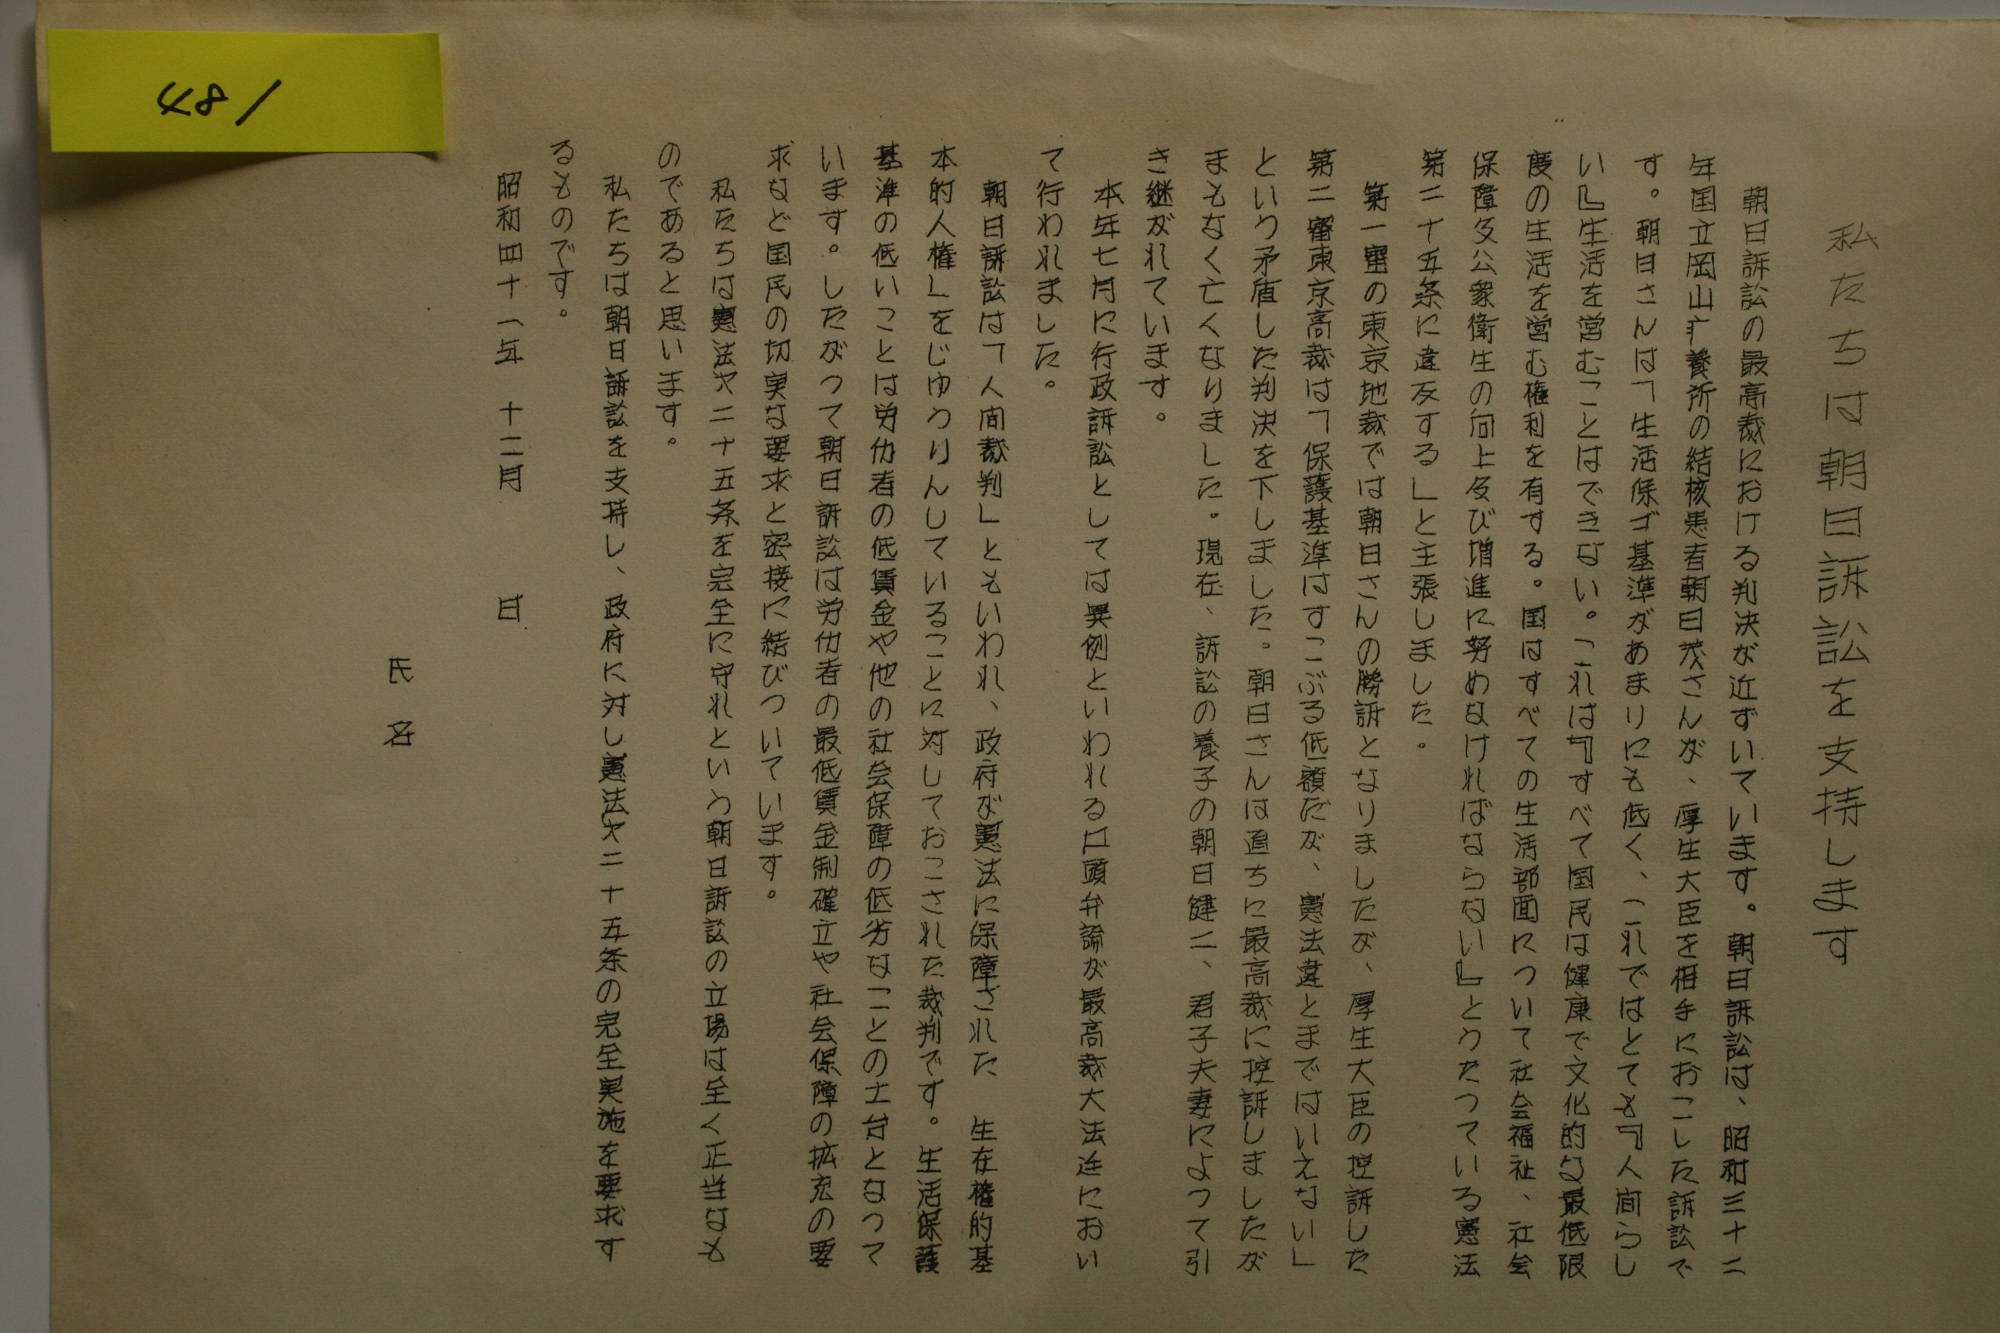 481
私たちは朝日訴訟を支持します
朝日訴訟の最高裁における判決が近ずいています。朝日訴訟は、昭和三十二
年国立岡山疒養所の結核患者朝日茂さんが、厚生大臣を相手におこした訴訟で
す。朝日さんは「生活保ゴ基準があまりにも低く、これではとても『人間らし
い』生活を営むことはできない。これは『すべて国民は健康で文化的な最低限
度の生活を営む権利を有する。国はすべての生活部面について社会福祉、社会
保障及公衆衛生の向上及び増進に努めなければならない』とうたっている憲法
第二十五条に違反する」と主張しました。
第一審の東京地裁では朝日さんの勝訴となりましたが、厚生大臣の控訴した
第二審東京高裁は「保護基準はすこぶる低額だが、憲法違とまではいえない」
という矛盾した判決を下しました。朝日さんは直ちに最高裁に控訴しましたが
まもなく亡くなりました。現在、訴訟の養子の朝日健二、君子夫妻によって引
き継がれています。
本年七月に行政訴訟としては異例といわれる口頭弁論が最高裁大法廷におい
て行われました。
朝日訴訟は「人間裁判」ともいわれ、政府が憲法に保障された 生存権的基
本的人権」をじゆうりんしていることに対しておこされた裁判です。生活保護
基準の低いことは労仂者の低賃金や他の社会保障の低劣なことの土台となって
います。したがって朝日訴訟は労仂者の最低賃金制確立や社会保障の拡充の要
求など国民の切実な要求と密接に結びついています。
私たちは憲法才二十五条を完全に守れという朝日訴訟の立場は全く正当なも
のであると思います。
私たちは朝日訴訟を支持し、政府に対し憲法才二十五条の完全実施を要求す
るものです。
昭和四十一年 十二月 日
氏名